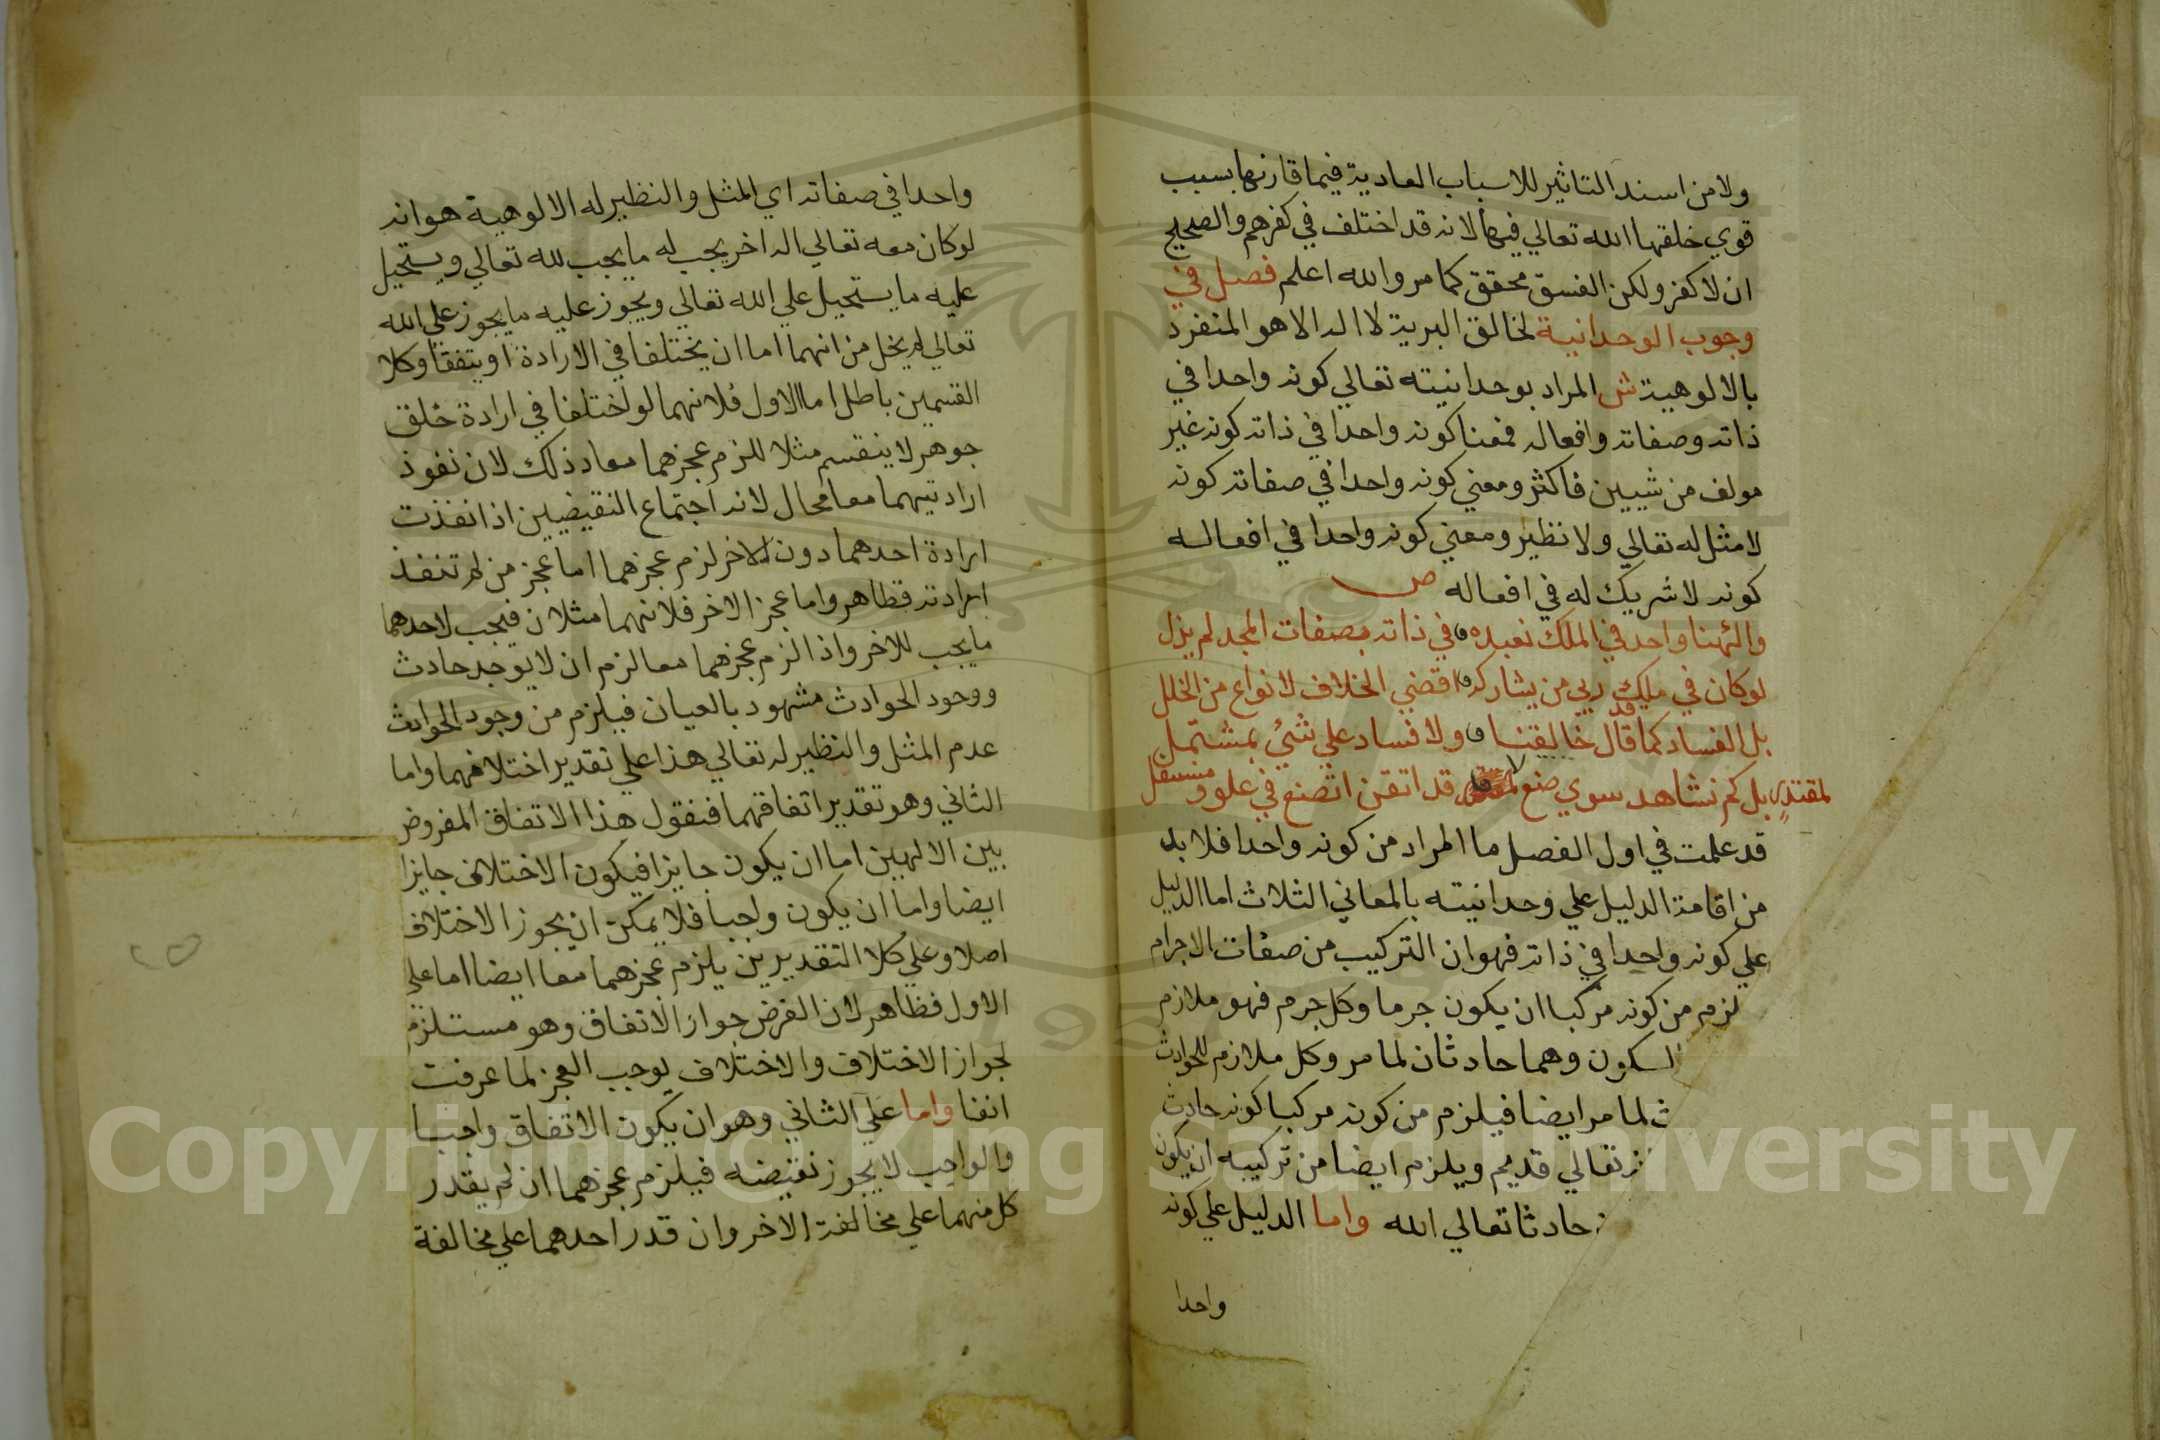 ولا من اسند التاثير للاسباب العادية فيما قارنها بسبب
قوي خلقها الله تعالي فيها لانه قد اختلف في كفرهم والصحيح
ان لا كفر ولكن الفسق محقق كما مر والله اعلم فصل في
وجوب الوحدانية لخالق البرية لا اله الا هو المنفرد
بالالوهية ش المراد بوحدانيته تعالي كونه واحدا في
ذاته وصفاته وافعاله فمعنا كونه واحدا في ذاته كونه غير
مولف من شيين فاكثر ومعني كونه واحدا في صفاته كونه
لا مثل له تعالي ولا نظير ومعني كونه واحدا في افعاله
كونه لا شريك له في افعاله ص
والهنا واحد في الملك نعبده في ذاته بصفات المجد لم يزل
لو كان في ملك ربي من يشاركه اقضي الخلاف لانواع من الخلل
بل الفساد كما قد قال خالقنا ولا فساد علي شئ بمشتمل
بل كم نشاهد سوي صنع لمقتدر قد اتقن الصنع في علو ومستفل
قد علمت في اول الفصل ما المراد من كونه واحدا فلا بد
من اقامة الدليل علي وحدانيته بالمعاني الثلاث اما الدليل
علي كونه واحدا في ذاته فهو ان التركيب من صفات الاجرام
لزم من كونه مركبا ان يكون جرما وكل جرم فهو ملازم
السكون وهما حادثان لما مر وكل ملازم للحوادث
ث لما مر ايضا فيلزم من كونه مركبا كونه حادث
تعالي قديم ويلزم ايضا من تركيبه ان يكون
حادثا تعالي الله واما الدليل علي كونه
واحدا
واحدا في صفاته اي المثل والنظير له الالوهية هو انه
لو كان معه تعالي اله اخر يجب له ما يجب لله تعالي ويستحيل
عليه ما يستحيل علي الله تعالي ويجوز عليه ما يجوز علي الله
تعالي لم يخل من انهما اما ان يختلفا في الارادة او يتفقا وكلا
القسمين باطل اما الاول فلانهما لو اختلفا في ارادة خلق
جوهر لا ينقسم مثلا للزم عجزهما معا وذلك لان نفوذ
ارادتيهما معا محال لانه اجتماع النقيضين اذا نفذت
ارادة احدهما دون الاخر لزم عجزهما اما عجز من لم تنفذ
ارادته فظاهر واما عجز الاخر فلانهما مثلان فيجب لاحدهما
ما يجب للاخر واذا لزم عجزهما معا لزم ان لا يوجد حادث
ووجود الحوادث مشهود بالعيان فيلزم من وجود الحوادث
عدم المثل والنظير له تعالي هذا علي تقدير اختلافهما واما
الثاني وهو تقدير اتفاقهما فنقول هذا الاتفاق المفروض
بين الالهين اما ان يكون جايزا فيكون الاختلاف جايزا
ايضا واما ان يكون واجبا فلا يمكن ان يجوز الاختلاف
اصلا وعلي كلا التقديرين يلزم عجزهما معا ايضا اما علي
الاول فظاهر لان الفرض جواز الاتفاق وهو مستلزم
لجواز الاختلاف والاختلاف يوجب العجز لما عرفت
انفا واما علي الثاني وهو ان يكون الاتفاق واجبا
والواجب لا يجوز نقيضه فيلزم عجزهما ان لم يقدر
كل منهما علي مخالفة الاخر وان قدر احدهما علي مخالفة
Copyright © King Saud University